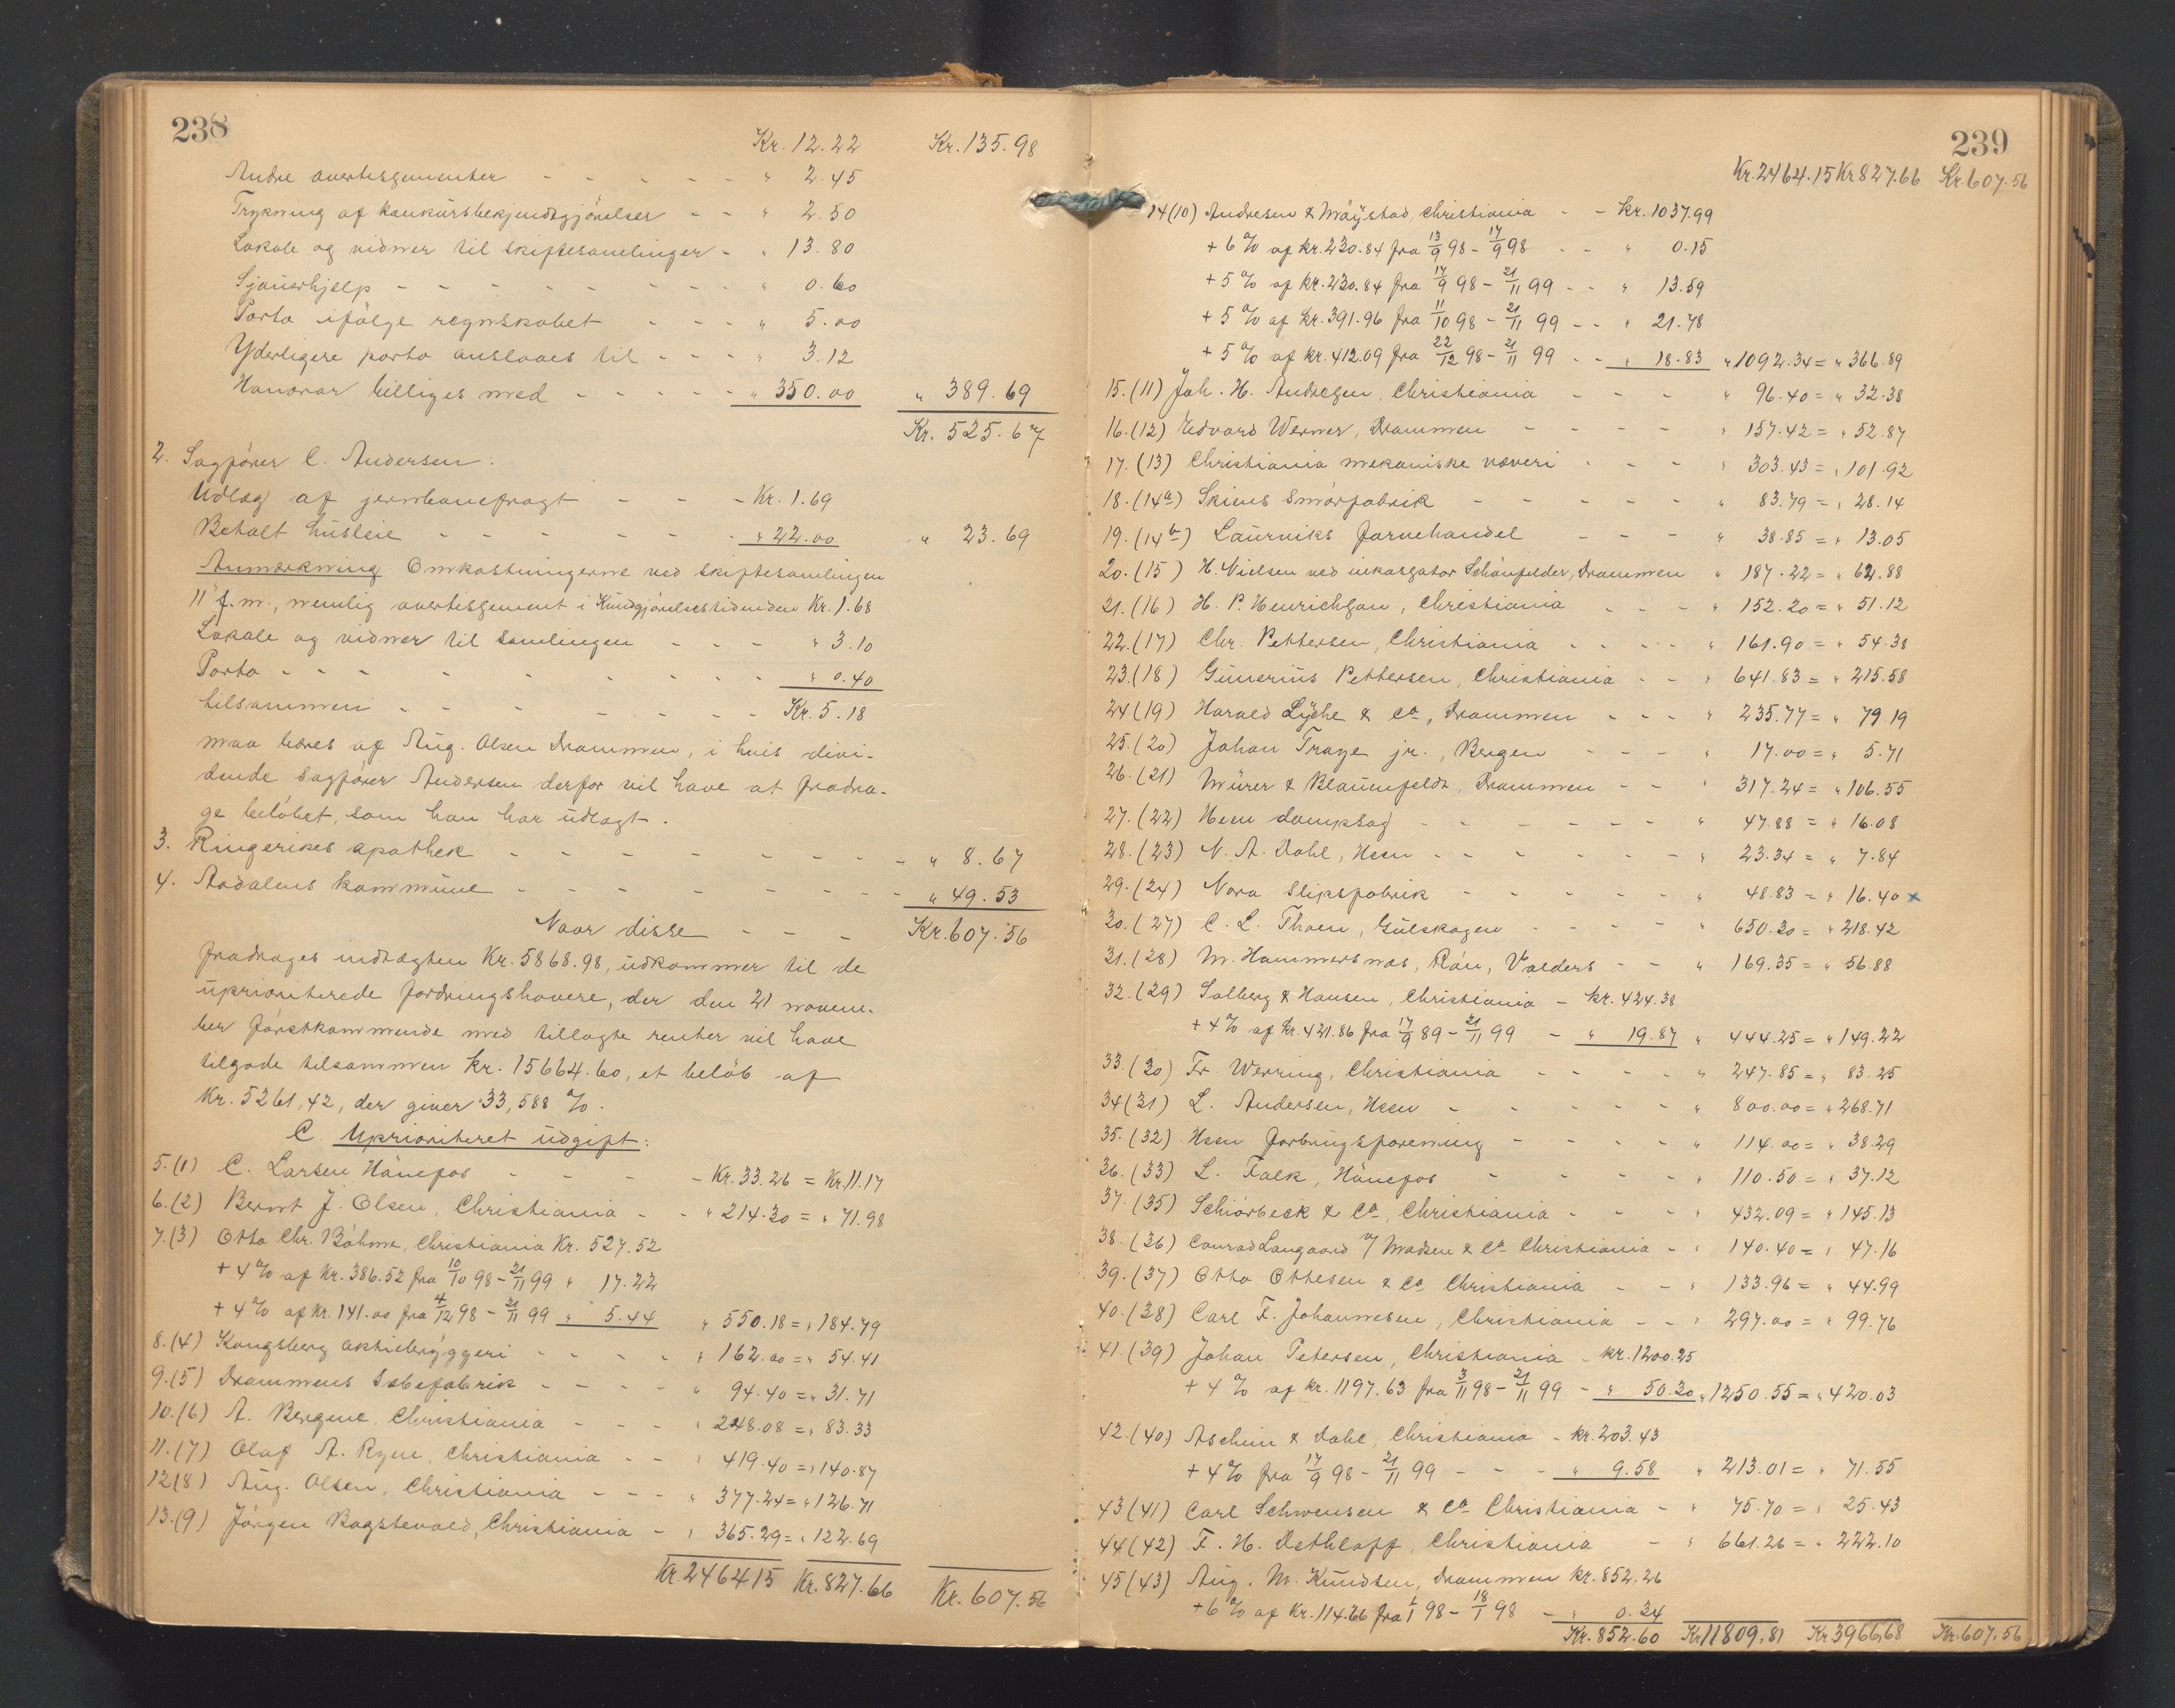 238
Kr. 12.22 Kr. 135.98
Andre avertisgementer - - - - - " 2.45
Trykning af konkursbekjendtgjörelser - - " 2.50
Lokale og vidner til skiftesamlinger - " 13.80
Sjauerhjelp - - - - - - - - " 0.60
Porto ifölge regnskabet - - - " 5.00
Yderligere porto anslaaes til - - - " 3.12
Honorar billiges med - - - - - " 350.00 " 389.69
Kr. 525.67
2. Sagförer C. Andersen:
Udlæg af jernbanefragt - - - Kr. 1.69
Betalt husleie - - - - - - - " 22.00 " 23.69
Anmærkning Omkostningerne ved skiftesamlingen
11 f.m., nemlig avertisgement i Kundgjörelsestidenden Kr. 1.68
Lokale og vidner til samlingen - - - " 3.10
Porto - - - - - - - - - " 0.40
tilsammen - - - - - - - Kr. 5.18
maa bæres af Aug. Olsen Drammen, i hvis divi-
dende sagförer Andersen derfor vil have at fradra-
ge belöbet, som han har udlagt.
3. Ringerikes apothek - - - - - - - - - " 8.67
4. Aadalens kommune - - - - - - - - " 49.53
Naar disse - - - Kr. 607.56
fradrages indtægten Kr. 5868.98, udkommer til de
uprioriterede fordringshavere, der den 21 novem-
ber förstkommende med tillagte renter vil have
tilgode tilsammen kr. 15664.60, et belöb af
Kr. 5261,42, der giver 33,588 %.
C. Uprioriteret udgift:
5.(1) C. Larsen Hönefos - - - - - Kr. 33.26 = Kr. 11.17
6.(2) Bernt J. Olsen, Christiania - - " 214.30 = " 71.98
7.(3) Otto Chr. Böhme, Christiania Kr. 527.52
+ 4% af Kr. 386.52 fra 10/10 98 - 21/11 99 " 17.22
+ 4% af kr. 141.00 fra 4/12 98 - 21/11 99 " 5.44 " 550.18 = " 184.79
8.(4) Kongsberg aktiebryggeri - - - - " 162.00 = " 54.41
9.(5) Drammens sæbefabrik - - - - " 94.40 = " 31.71
10.(6) A. Bergene, Christiania - - - " 248.08 = " 83.33
11.(7) Olaf A. Ryen, Christiania - - " 419.40 = " 140.87
12(8) Aug. Olsen, Christiania - - - " 377.24 = " 126.71
13.(9) Jörgen Bagstevold, Christiania - " 365.29 = " 122.69
Kr. 2464 15 Kr. 827.66 Kr. 607.56
239
Kr. 2464.15 Kr 827.66 Kr. 607.56
14(10) Andresen & Möystad, Christiania - - kr. 1037.99
+ 6% af kr. 230.84 fra 13/9 98 - 17/9 98 - - " 0.15
+ 5% af kr. 230.84 fra 17/9 98 - 21/11 99 - - " 13.59
+ 5% af kr. 391.96 fra 11/10 98 - 21/11 99 - - " 21.78
+ 5% af kr. 412.09 fra 22/12 98 - 21/11 99 - - " 18.83 " 1092.34 = " 366.89
15.(11) Joh. H. Andresen, Christiania - - - " 96.40 = " 32.38
16.(12) Edvard Werner, Drammen - - - - " 157.42 = " 52.87
17.(13) Christiania mekaniske væveri - - - " 303.43 = " 101.92
18.(14a) Skiens smörfabrik - - - - - " 83.79 = " 28.14
19.(14b) Laurviks farvehandel - - - " 38.85 = " 13.05
20.(15) H. Nielsen ved inkassator Schönfelder, Drammen " 187.22 = " 62.88
21.(16) H. P. Henrichsen, Christiania - - - " 152.20 = " 51.12
22.(17) Chr. Pettersen, Christiania - - - - " 161.90 = " 54.38
23.(18) Gunerius Pettersen, Christiania - - " 641.83 = " 215.58
24(19) Harald Lyche & Co, Drammen - - - " 235.77 = " 79.19
25.(20) Johan Traye jr., Bergen - - - " 17.00 = " 5.71
26.(21) Mürer & Blaünfeldt, Drammen - - " 317.24 = " 106.55
27.(22) Heen dampsag - - - - - - " 47.88 = " 16.08
28.(23) N. A. Dahl, Heen - - - - - - " 23.34 = " 7.84
29.(24) Nora slipsfabrik - - - - - " 48.83 = " 16.40 x
30.(27) C. L. Thoen, Gulskogen - - - - " 650.30 = " 218.42
31.(28) M. Hammersnæs, Rön, Valders - - " 169.35 = " 56.88
32.(29) Solberg & Hansen, Christiania - kr. 424.38
+ 4% af kr. 421.86 fra 17/9 89 - 21/11 99 - " 19.87 " 444.25 = " 149.22
33.(30) Fr. Werring, Christiania - - - - " 247.85 = " 83.25
34(31) L. Andersen, Heen - - - - - " 800.00 = " 268.71
35.(32) Heen forbrugsforening - - - - " 114.00 = " 38.29
36.(33) L. Falk, Hönefos - - - - " 110.50 = " 37.12
37.(35) Schiörbeck & Co, Christiania - - - " 432.09 = " 145.13
38.(36) Conrad Langaard v/ Madsen & Co Christiania - " 140.40 = " 47.16
39.(37) Otto Ottesen & Co Christiania - - " 133.96 = " 44.99
40.(38) Carl F. Johannesen, Christiania - - " 297.00 = " 99.76
41.(39) Johan Petersen, Christiania - kr. 1200.25
+ 4% af kr. 1197.63 fra 3/11 98 - 21/11 99 - " 50.30 " 1250.55 = " 420.03
42.(40) Aschim & Dahl, Christiania - kr. 203.43
+ 4% fra 17/9 98 - 21/11 99 - - - " 9.58 " 213.01 = " 71.55
43(41) Carl Schwensen & Co Christiania - " 75.70 = " 25.43
44(42) F. H. Dethloff, Christiania - " 661.26 = " 222.10
45(43) Aug. M. Knudsen, Drammen kr. 852.26
+ 6% af Kr. 114.66 fra 1/1 98 - 18/1 98 - " 0.34
Kr. 852.60 Kr 11809,81 Kr 3966,68 Kr. 607,56